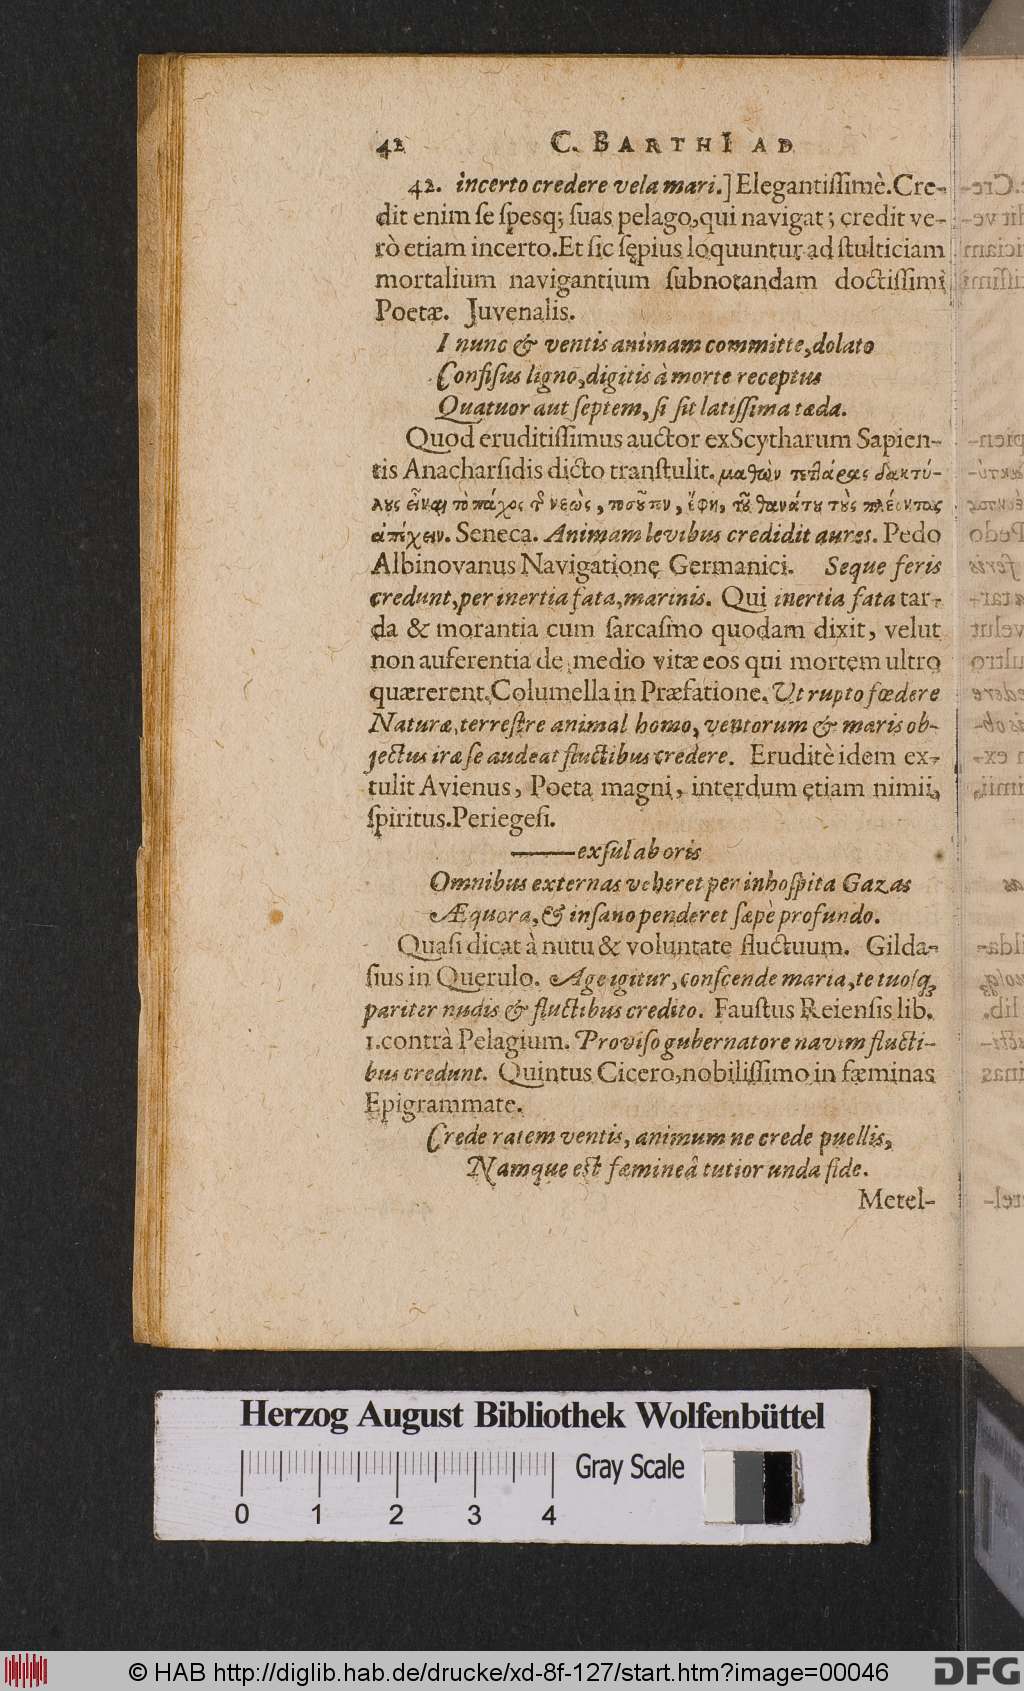 42 C. BARTHI AD
42. incerto credere vela mari.] Elegantiſſimè. Cre-
dit enim ſe ſpesq; ſuas pelago, qui navigat; credit ve-
rò etiam incerto. Et ſic ſępius loquuntur ad ſtulticiam
mortalium navigantium ſubnotandam doctiſſimi
Poetæ. Juvenalis.
I nunc & ventis animam committe, dolato
Confiſus ligno, digitis à morte receptus
Quatuor aut ſeptem, ſi ſit latiſſima tæda.
Quod eruditiſſimus auctor ex Scytharum Sapien-
tis Anacharſidis dicto tranſtulit. μαθὼν τέτλαρας δακτύ-
λους εἶναι τὸ πάχος τ͂ νεὼς, τοσοῦτον, ἔφη, τοῦ θανάτου τοὺς πλέοντας
ἀπέχειν. Seneca. Animam levibus credidit aures. Pedo
Albinovanus Navigationę Germanici. Seque feris
credunt, per inertia fata, marinis. Qui inertia fata tar-
da & morantia cum ſarcaſmo quodam dixit, velut
non auferentia de medio vitæ eos qui mortem ultro
quærerent. Columella in Præfatione. Ut rupto fœdere
Naturæ, terreſtre animal homo, ventorum & maris ob-
jectus iræ ſe audeat fluctibus credere. Eruditè idem ex-
tulit Avienus, Poeta magni, interdum ętiam nimii,
ſpiritus. Periegeſi.
—— exſul ab oris
Omnibus externas veheret per inhoſpita Gazas
Æquora, & inſano penderet ſæpè profundo.
Quaſi dicat à nutu & voluntate fluctuum. Gilda-
ſius in Querulo. Age igitur, conſcende maria, te tuoſq;
pariter nudis & fluctibus credito. Fauſtus Reienſis lib.
1. contrà Pelagium. Proviſo gubernatore navim flucti-
bus credunt. Quintus Cicero, nobiliſſimo in fæminas
Epigrammate.
Crede ratem ventis, animum ne crede puellis,
Namque eſt fæmineâ tutior unda fide.
Metel-
Herzog August Bibliothek Wolfenbüttel
Gray Scale
0 1 2 3 4
© HAB http://diglib.hab.de/drucke/xd-8f-127/start.htm?image=00046
DFG